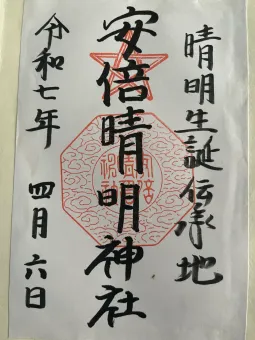 晴明生誕伝承地
安倍晴明神社
令和七年 四月六日